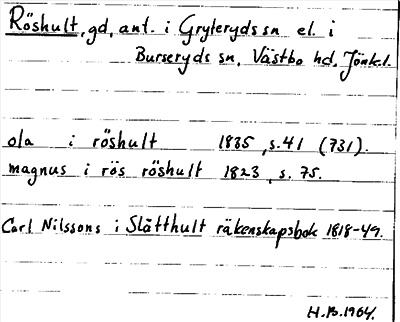 Röshult, gd, ant. i Gryteryds sn el. i
Burseryds sn, Västbo hd, Jönk.l.
ola i röshult 1835, s.41 (731).
magnus i rös röshult 1823, s. 75.
Carl Nilssons i Slätthult räkenskapsbok 1818-49.
H.B.1964.